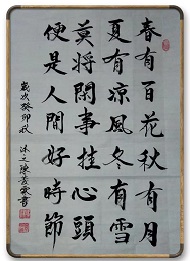 春有百花秋有月
夏有凉風冬有雪
莫将閑事挂心頭
便是人間好時節
歲次癸卯秋